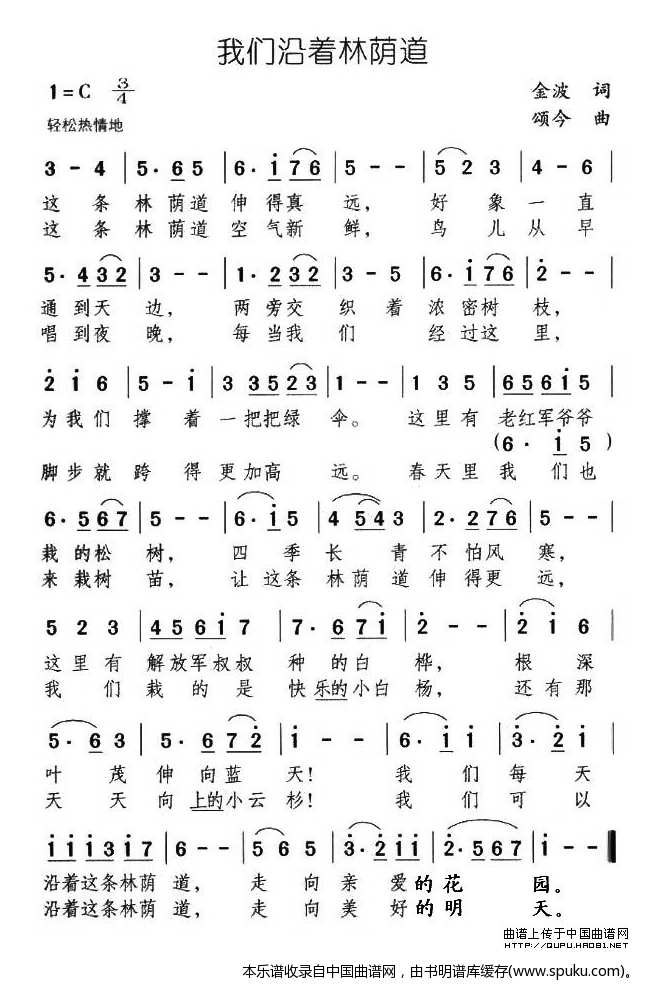 我们沿着林荫道
1=C 3/4 金波 词
轻松热情地 颂今 曲
3 - 4 | 5· 6 5 | 6· i 7 6 | 5 - - | 5 2 3 | 4 - 6 |
这 条 林 荫 道 伸 得真 远， 好 象 一 直
这 条 林 荫 道 空 气新 鲜， 鸟 儿 从 早
5· 4 3 2 | 3 - - | 1· 2 3 2 | 3 - - 5 | 6· i 7 6 | 2 - - |
通 到天 边， 两 旁交 织 着 浓 密树 枝，
唱 到夜 晚， 每 当我 们 经 过这 里，
2 i 6 | 5 - i | 3 3 5 2 3 | 1 - - | 1 3 5 | 6 5 6 i 5 |
为 我 们 撑 着 一 把把绿 伞。 这 里 有 老红军爷爷
(6· i 5)
脚 步 就 跨 得 更 加高 远。 春 天 里 我 们 也
6· 5 6 7 | 5 - - | 6· i 5 | 4 5 4 3 | 2· 2 7 6 | 5 - - |
栽 的松 树， 四 季 长 青 不 怕风 寒，
来 栽树 苗， 让 这 条 林 荫 道 伸 得更 远，
5 2 3 | 4 5 6 i 7 | 7· 6 7 i | 2 - - | 2 i 6 |
这 里 有 解放军叔叔 种 的白 桦， 根 深
我 们 栽 的 是 快 乐的小白 杨， 还 有 那
5· 6 3 | 5· 6 7 2 | i - - | 6· i i | 3· 2 i |
叶 茂 伸 向 蓝 天! 我 们 每 天
天 天 向 上的小云 杉! 我 们 可 以
i i i 3 i 7 | 6 - - | 5 6 5 | 3· 2 i i | 2· 5 6 7 | i - - ‖
沿着这条林荫 道， 走 向 亲 爱 的 花 园。
沿着这条林荫 道， 走 向 美 好 的 明 天。
曲谱上传于中国曲谱网
HTTP://QUPU.HAO81.NET
本乐谱收录自中国曲谱网，由书明谱库缓存(www.spuku.com)。